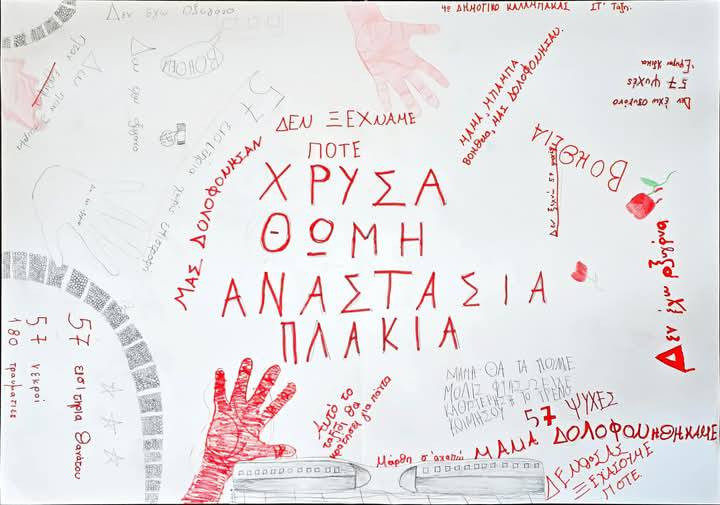 4ο ΔΗΜΟΤΙΚΟ ΚΑΛΑΜΠΑΚΑΣ ΣΤ' Τάξη
Δεν έχω οξυγόνο
ΒΟΗΘΕΙΑ
57 εισιτήρια χωρίς επιστροφή
ΜΑΣ ΔΟΛΟΦΟΝΗΣΑΝ
ΔΕΝ ΞΕΧΝΑΜΕ
ΠΟΤΕ
ΧΡΥΣΑ
ΘΩΜΗ
ΑΝΑΣΤΑΣΙΑ
ΠΛΑΚΙΑ
ΜΑΜΑ, ΜΠΑΜΠΑ
ΒΟΗΘΕΙΑ, ΜΑΣ ΔΟΛΟΦΟΝΗΣΑΝ.
57 ΨΥΧΕΣ
Δεν έχω οξυγόνο
ΒΟΗΘΕΙΑ
Δεν έχω οξυγόνο
57 εισιτήρια θανάτου
57 νεκροί
180 τραυματίες
Αυτό το
ταξίδι θα
κρατήσει για πάντα
ΜΑΜΑ ΘΑ ΤΑ ΠΟΥΜΕ
ΜΟΛΙΣ ΦΤΑΣΩ
57 ΨΥΧΕΣ
Μάρθη σ'αγαπώ
ΜΑΜΑ ΔΟΛΟΦΟΝΗΘΗΚΑΜΕ
ΔΕΝ ΘΑ ΣΑΣ
ΞΕΧΑΣΟΥΜΕ
ΠΟΤΕ